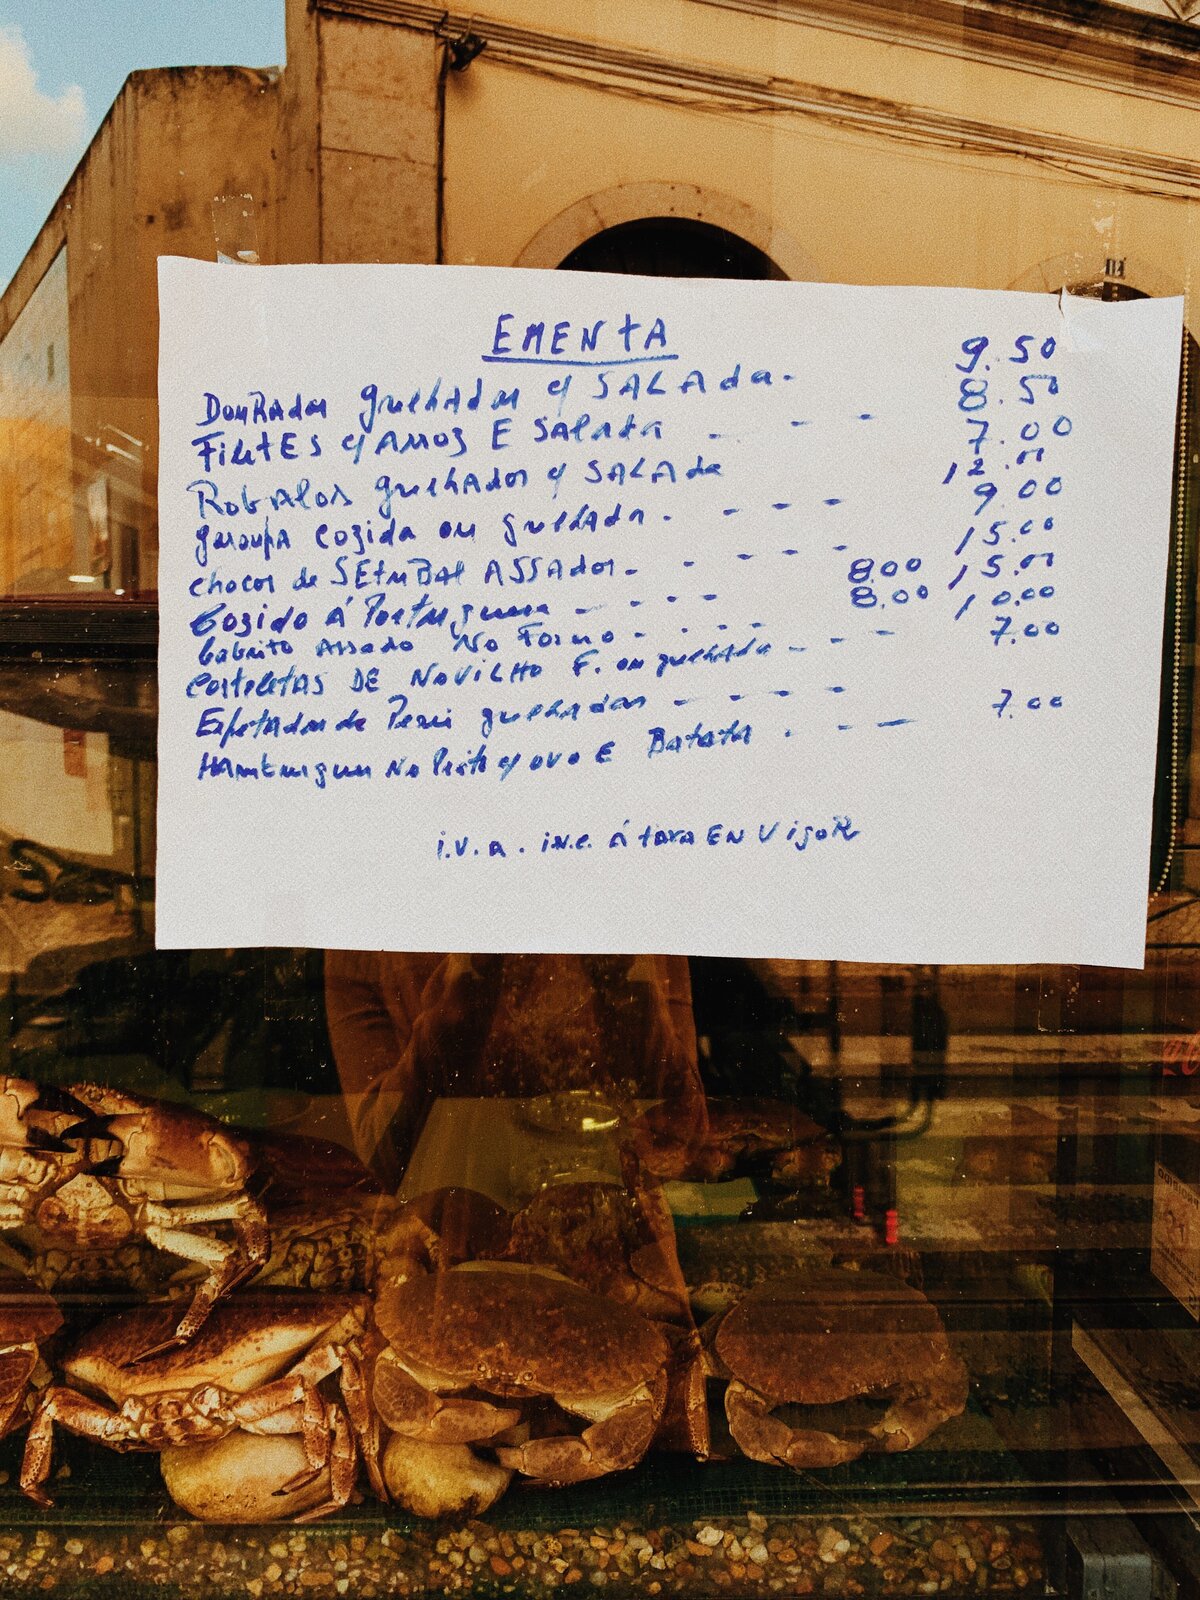 EMENTA
DouRAdas grelhAdas c/ SALAda. 9.50
FiletES c/ARROz E SAlAdA - - - 8.50
RobAlos grelhAdos c/ SALAda 7.00
garoupA cozida ou grelhada. - - - 12.00
chocos de SEtuBAl ASSAdos - - - - 9.00
Cozido á Portuguesa - - - - 8.00 15.00
Cabrito Assado No Forno - - - - 8.00 15.00
CosteletAS DE NOVILHO F. ou grelhada - - - 10.00
EspetAdas de Peru grelhAdas - - - - 7.00
HAmburguer No Prato c/ ovo E BatatA . - - 7.00
i.V.A. inc. á taxa EN VigoR